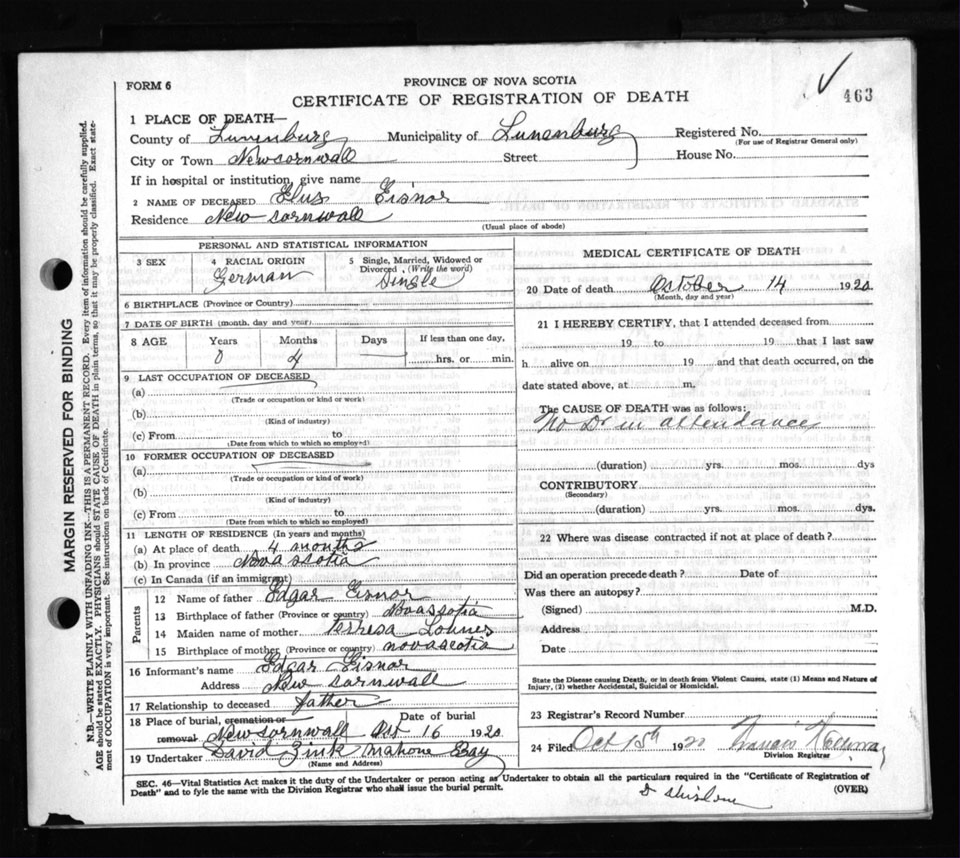 FORM 6
PROVINCE OF NOVA SCOTIA
463
CERTIFICATE OF REGISTRATION OF DEATH
1 PLACE OF DEATH—
County of Lunenburg Municipality of Lunenburg Registered No.
(For use of Registrar General only)
City or Town Newcornwall Street House No.
If in hospital or institution, give name
2 NAME OF DECEASED Elus Eisnor
Residence New Cornwall
(Usual place of abode)
PERSONAL AND STATISTICAL INFORMATION
3 SEX 4 RACIAL ORIGIN 5 Single, Married, Widowed or Divorced, (Write the word)
German Single
6 BIRTHPLACE (Province or Country)
7 DATE OF BIRTH (month, day and year)
8 AGE Years Months Days If less than one day,
0 4 hrs. or min.
9 LAST OCCUPATION OF DECEASED
(a)
(Trade or occupation or kind or work)
(b)
(Kind of industry)
(c) From to
(Date from which to which so employed)
10 FORMER OCCUPATION OF DECEASED
(a)
(Trade or occupation or kind of work)
(b)
(Kind of industry)
(c) From to
(Date from which to which is employed)
11 LENGTH OF RESIDENCE (In years and months)
(a) At place of death 4 months
(b) In province Nova Scotia
(c) In Canada (if an immigrant)
Parents
12 Name of father Edgar Eisnor
13 Birthplace of father (Province or country) Nova Scotia
14 Maiden name of mother Teresa Lohnes
15 Birthplace of mother (Province or country) nova scotia
16 Informant's name Edgar Eisnor
Address New Cornwall
17 Relationship to deceased father
18 Place of burial, cremation or removal Date of burial
New Cornwall Oct 16 1920
19 Undertaker David Zink Mahone Bay
(Name and Address)
MEDICAL CERTIFICATE OF DEATH
20 Date of death October 14 1920
(Month, day and year)
21 I HEREBY CERTIFY, that I attended deceased from
19 to 19 that I last saw
h alive on 19 and that death occurred, on the
date stated above, at m.
The CAUSE OF DEATH was as follows:
No Dr in attendance
(duration) yrs. mos. dys
CONTRIBUTORY
(Secondary)
(duration) yrs. mos. dys.
22 Where was disease contracted if not at place of death?
Did an operation precede death? Date of
Was there an autopsy?
(Signed) M.D.
Address
Date
State the Disease causing Death, or in death from Violent Causes, state (1) Means and Nature of
Injury, (2) whether Accidental, Suicidal or Homicidal.
23 Registrar's Record Number
24 Filed Oct 15th 1920
Division Registrar
SEC. 46—Vital Statistics Act makes it the duty of the Undertaker or person acting as Undertaker to obtain all the particulars required in the "Certificate of Registration of
Death" and to fyle the same with the Division Registrar who shall issue the burial permit.
(OVER)
MARGIN RESERVED FOR BINDING
N.B.—WRITE PLAINLY WITH UNFADING INK—THIS IS A PERMANENT RECORD. Every item of information should be carefully supplied.
AGE should be stated EXACTLY. PHYSICIANS should STATE CAUSE OF DEATH in plain terms, so that it may be properly classified. Exact state-
ment of OCCUPATION is very important. See instructions on back of Certificate.